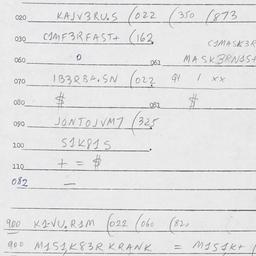 020 KAJV3RU.S (022 (350 (873
030 C1MF3RFAST+ (162
C1MASK3R
060 0 061 MASK3RN1S+
070 1B3RB4.SN (022 91 1 xx
080 $ 081 $
090 J0NT0JVM7 (325
100 S1K81S .
110 + = $
082 —
900 K1-VU.R1M (022 (060 (82
900 M1S1,K83R KRANK = M1S1K+ (